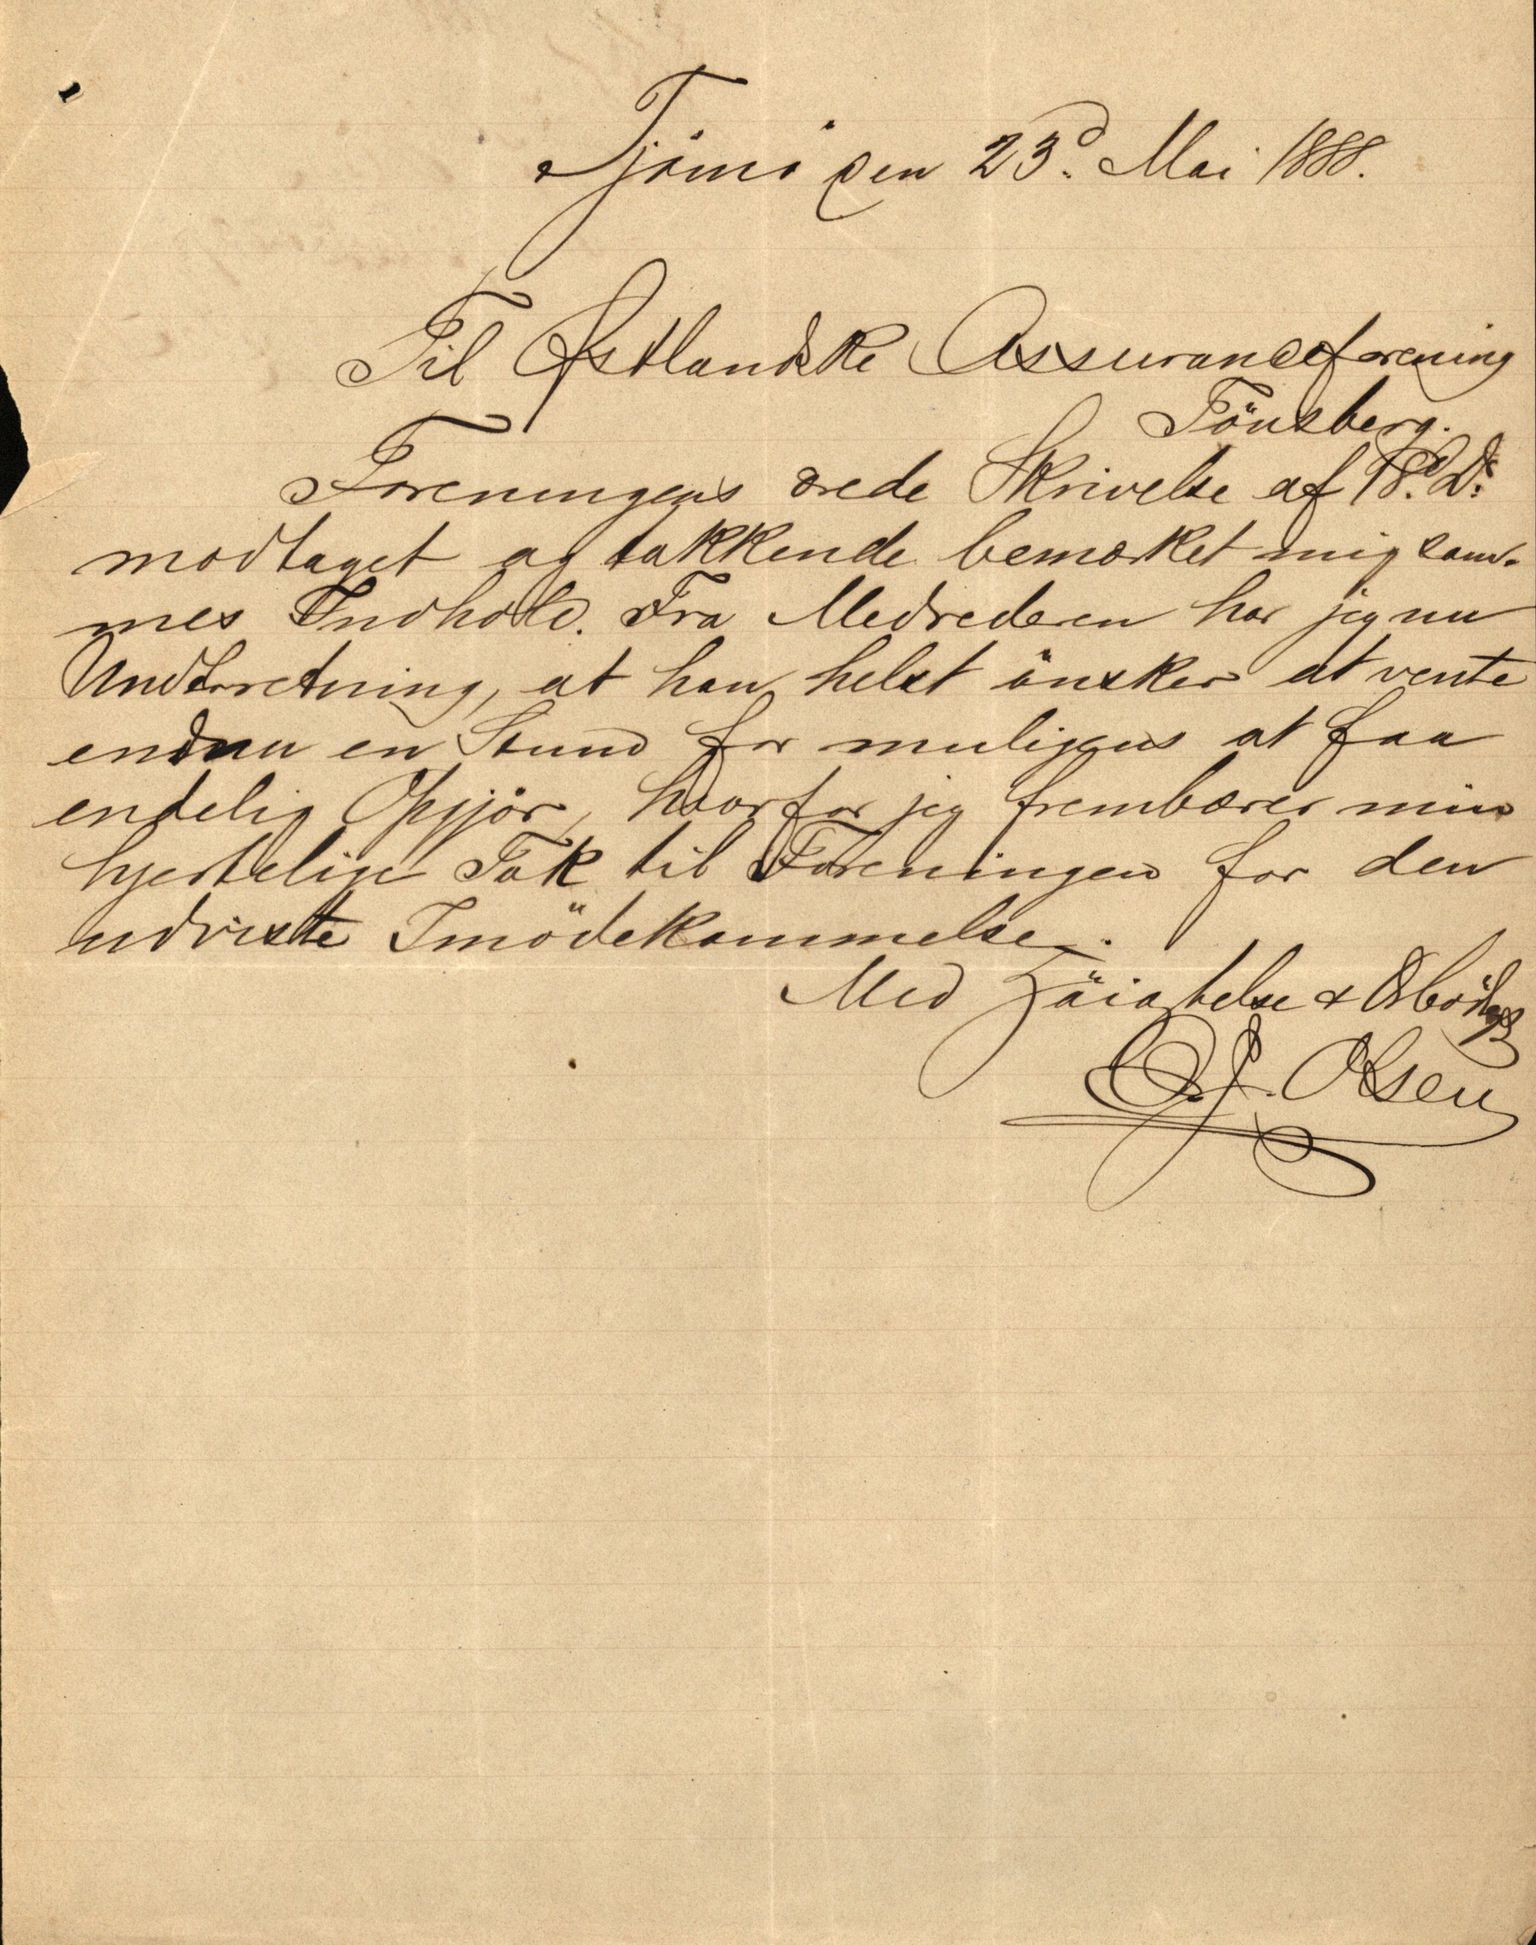 Tjömö den 23d. Mai 1888.
Til Østlandske Assuranceforening
Tönsberg.
Foreningens ærede Skrivelse af 18d. Ds.
modtaget og takkende bemærket mig sam-
mes Indhold. Fra Medrederen har jeg nu
Underretning, at han helst önsker at vente
endnu en Stund for muligens at faa
endelig Opgjör, hvorfor jeg frembærer min
hjertelige Tak til Foreningen for den
udviste Imödekommelse.
Med Höiagtelse &
Olsen